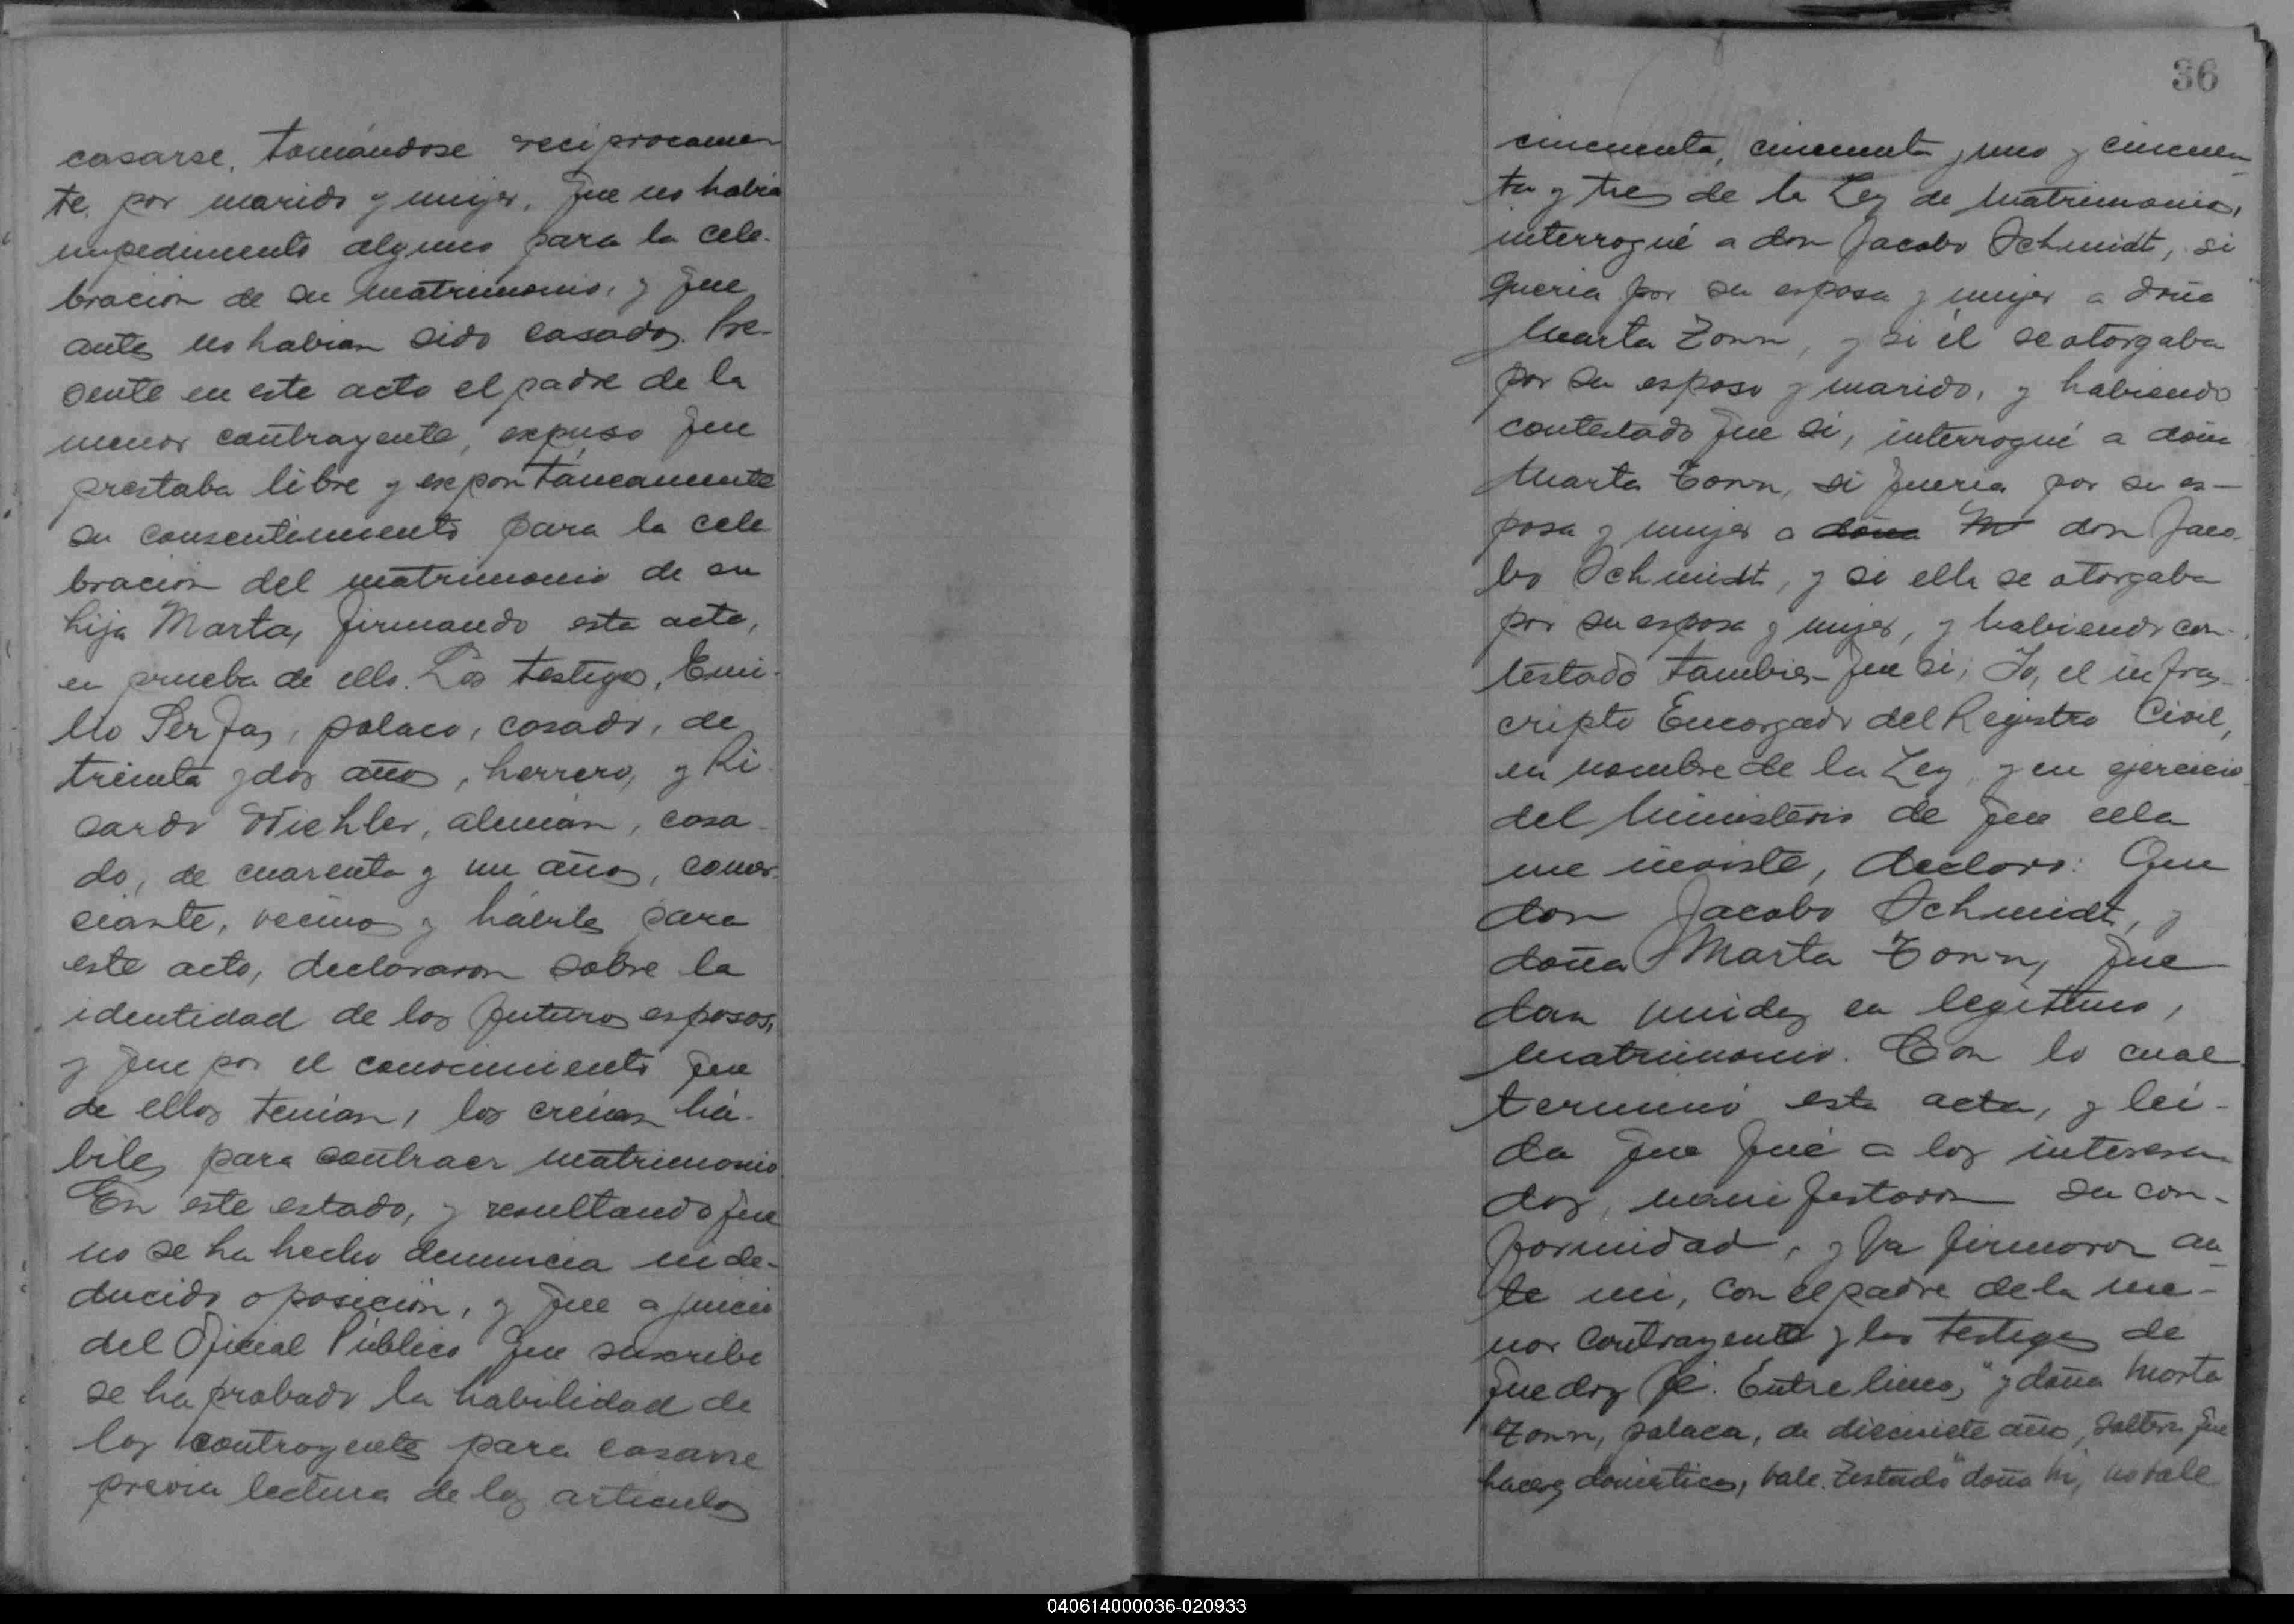 casarse, tomándose recíprocamen
te por marido y mujer, que no había
impedimento alguno para la cele-
bración de su matrimonio, y que
antes no habían sido casados. Pre-
sente en este acto el padre de la
menor contrayente, expuso que
prestaba libre y expontáneamente
su consentimiento para la cele
bración del matrimonio de su
hija Marta, firmando esta acta,
en prueba de ello. Los testigos, Emi-
lio polaco, casado, de
treinta y dos años, herrero, y Ri-
cardo Wiehler, alemán, casa-
do, de cuarenta y un años, comer-
ciante, vecinos y hábiles para
este acto, declararon sobre la
identidad de los futuros esposos,
y que por el conocimiento que
de ellos tenían, los creían há-
biles para contraer matrimonio
En este estado, y resultando que
no se ha hecho denuncia ni de-
ducido oposición, y que a juicio
del Oficial Público que suscribe
se ha probado la habilidad de
los contrayentes para casarse
previa lectura de los artículos
36
cincuenta, cincuenta y uno y cincuen-
ta y tres de la Ley de Matrimonio,
interrogué a don Jacobo Schmidt, si
quería por su esposa y mujer a doña
Marta Zonn, y si él se otorgaba
por su esposo y marido, y habiendo
contestado que si, interrogué a doña
Marta Zonn, si quería por su es-
posa y mujer a doña M don Jaco-
bo Schmidt, y si ella se otorgaba
por su esposa y mujer, y habiendo con-
testado tambien que si; Yo, el infras-
cripto Encargado del Registro Civil,
en nombre de la Ley, y en ejercicio
del ministerio de que ella
me inviste, declaro: Que
don Jacobo Schmidt, y
doña Marta Zonn, que
dan unidos en legítimo,
matrimonio. Con lo cual
terminó esta acta, y leí-
da que fué a los interesa-
dos, manifestaron su con-
formidad, y la firmaron an-
te mi, con el padre de la me-
nor contrayente y los testigos de
que doy fé. Entre lineas, "y doña Marta
Zonn, polaca, de diecisiete años, soltera, que
haceres domésticos, vale. Testado "doña M, no vale
040614000036-020933